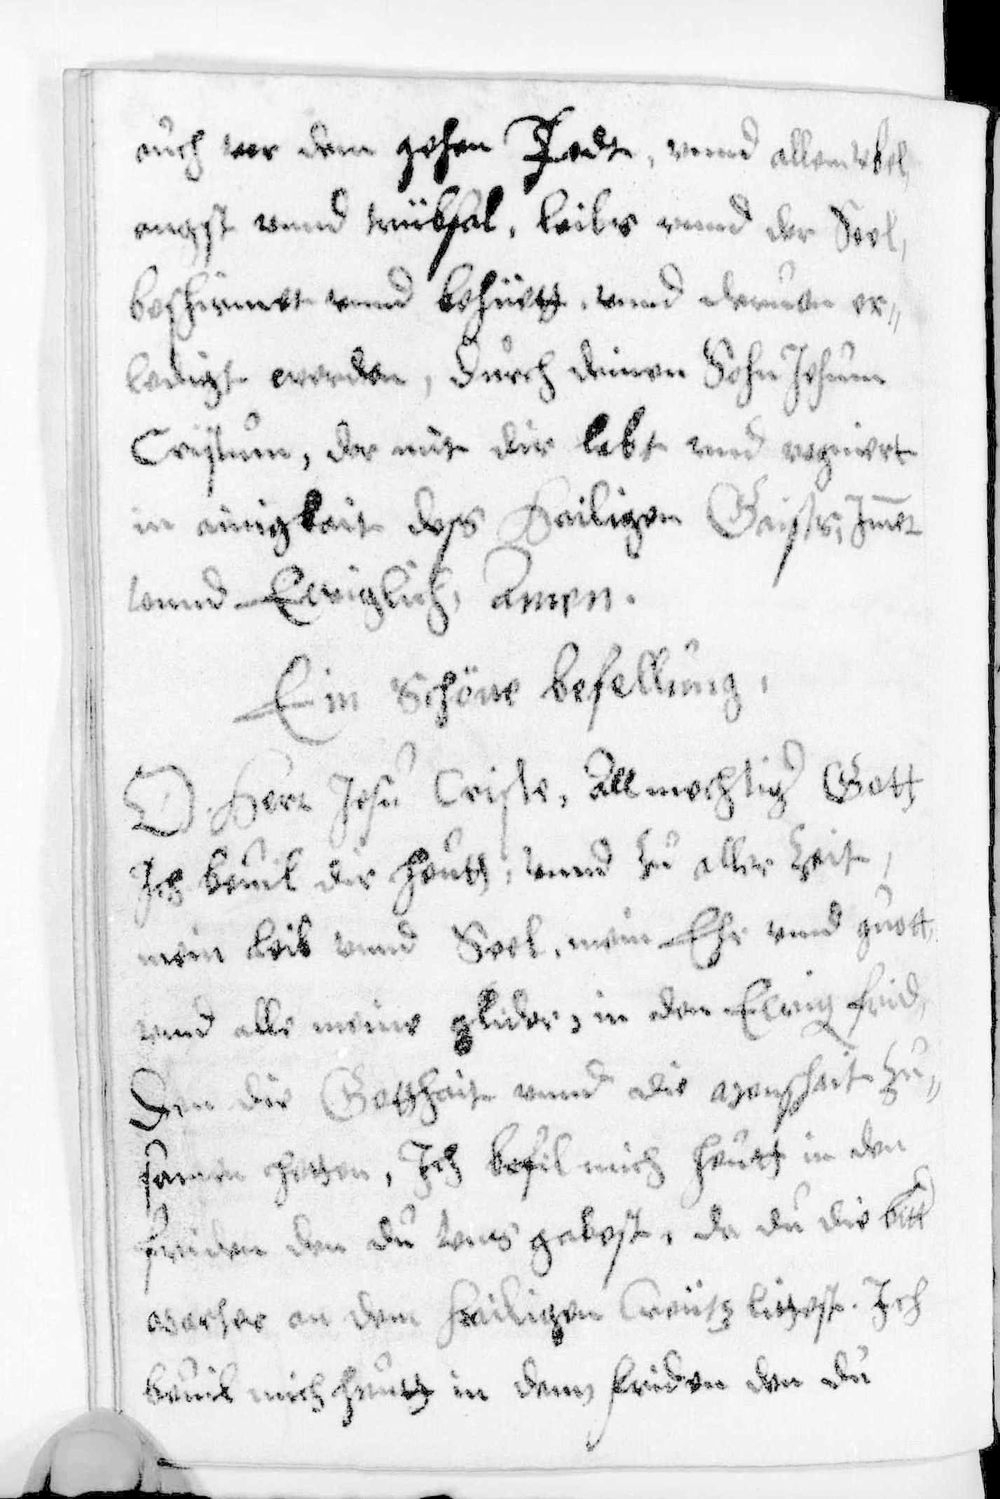 auch vor dem gehen Todt, vnnd allem vbel,
angst vnnd trübsal, leibs vnnd der Seel,
beschirmet vnnd behüett, vnnd dauon er„
ledigt werden, Durch deinen Sohn Jhesum
Cristum, der mit dir lebt vnd regniert
in ainigkait dess Hailigen Gaists, Jm̄er
vnnd Ewiglich, Amen.
Ein Schöne befellung,
O Herr Jesu Criste, Allmechtiger Gott
Jch beuil dir heutt, vnnd zu aller Zeit,
mein leib vnnd Seel, mein Ehr vnd guott,
vnd alle meine glider, in den Ewig frid,
Den die Gotthait vnnd die menschait Zu„
samen hetten, Jch befil mich heutt in den
friden den du vns gabest, da du die bitt
marter an dem hailigen Creütz littest. Jch
beuil mich heutt in dem friden den du